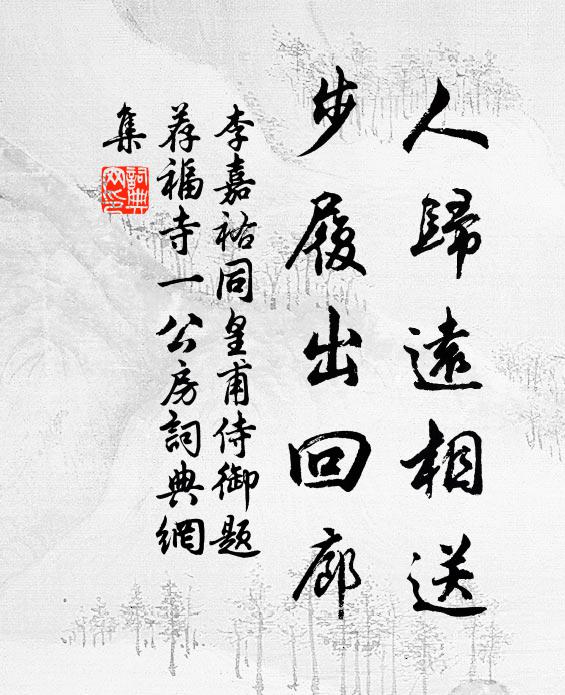 人歸遠相送
步履出回廊
李嘉祐同皇甫侍御題
荐福寺一公房詞典網
集
詞典
网